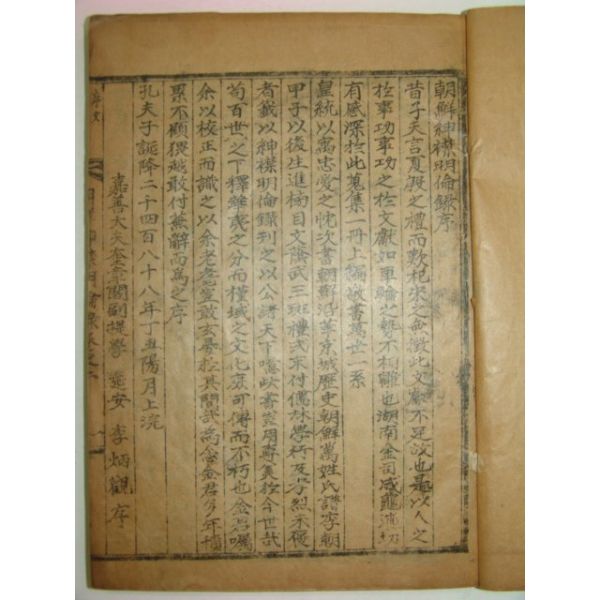 朝鮮紳襟明倫錄序
昔子夫言夏殷之禮而歎杞宋之無徵此文獻不足故也是以人之
於事功事功之於文獻如車輪之 不相離也湖南金司 
有感深於此蒐集一冊上編 書萬世一系
皇統以寓忠愛之忱次書朝鮮沿革京城歷史朝鮮萬姓氏譜李朝
甲子以後生進榜目文蔭武三班禮式末付儒林學行及孝烈未褒
者籤以神襟明倫錄刊之以公諸天下噫此書豈周 於今世哉
苟百世之下釋 之分而槿域之文化庶可傳而不朽也金君囑
余以校正而識之以余老耄豈敢玄晏於其間哉為 金君多年積
累不顧猥越敢付蕪辭而為之序
孔夫子誕降二千四百八十八年丁丑陽月上浣
嘉善大夫奎章閣副提學 安 李炳觀序
序文
明倫錄 之